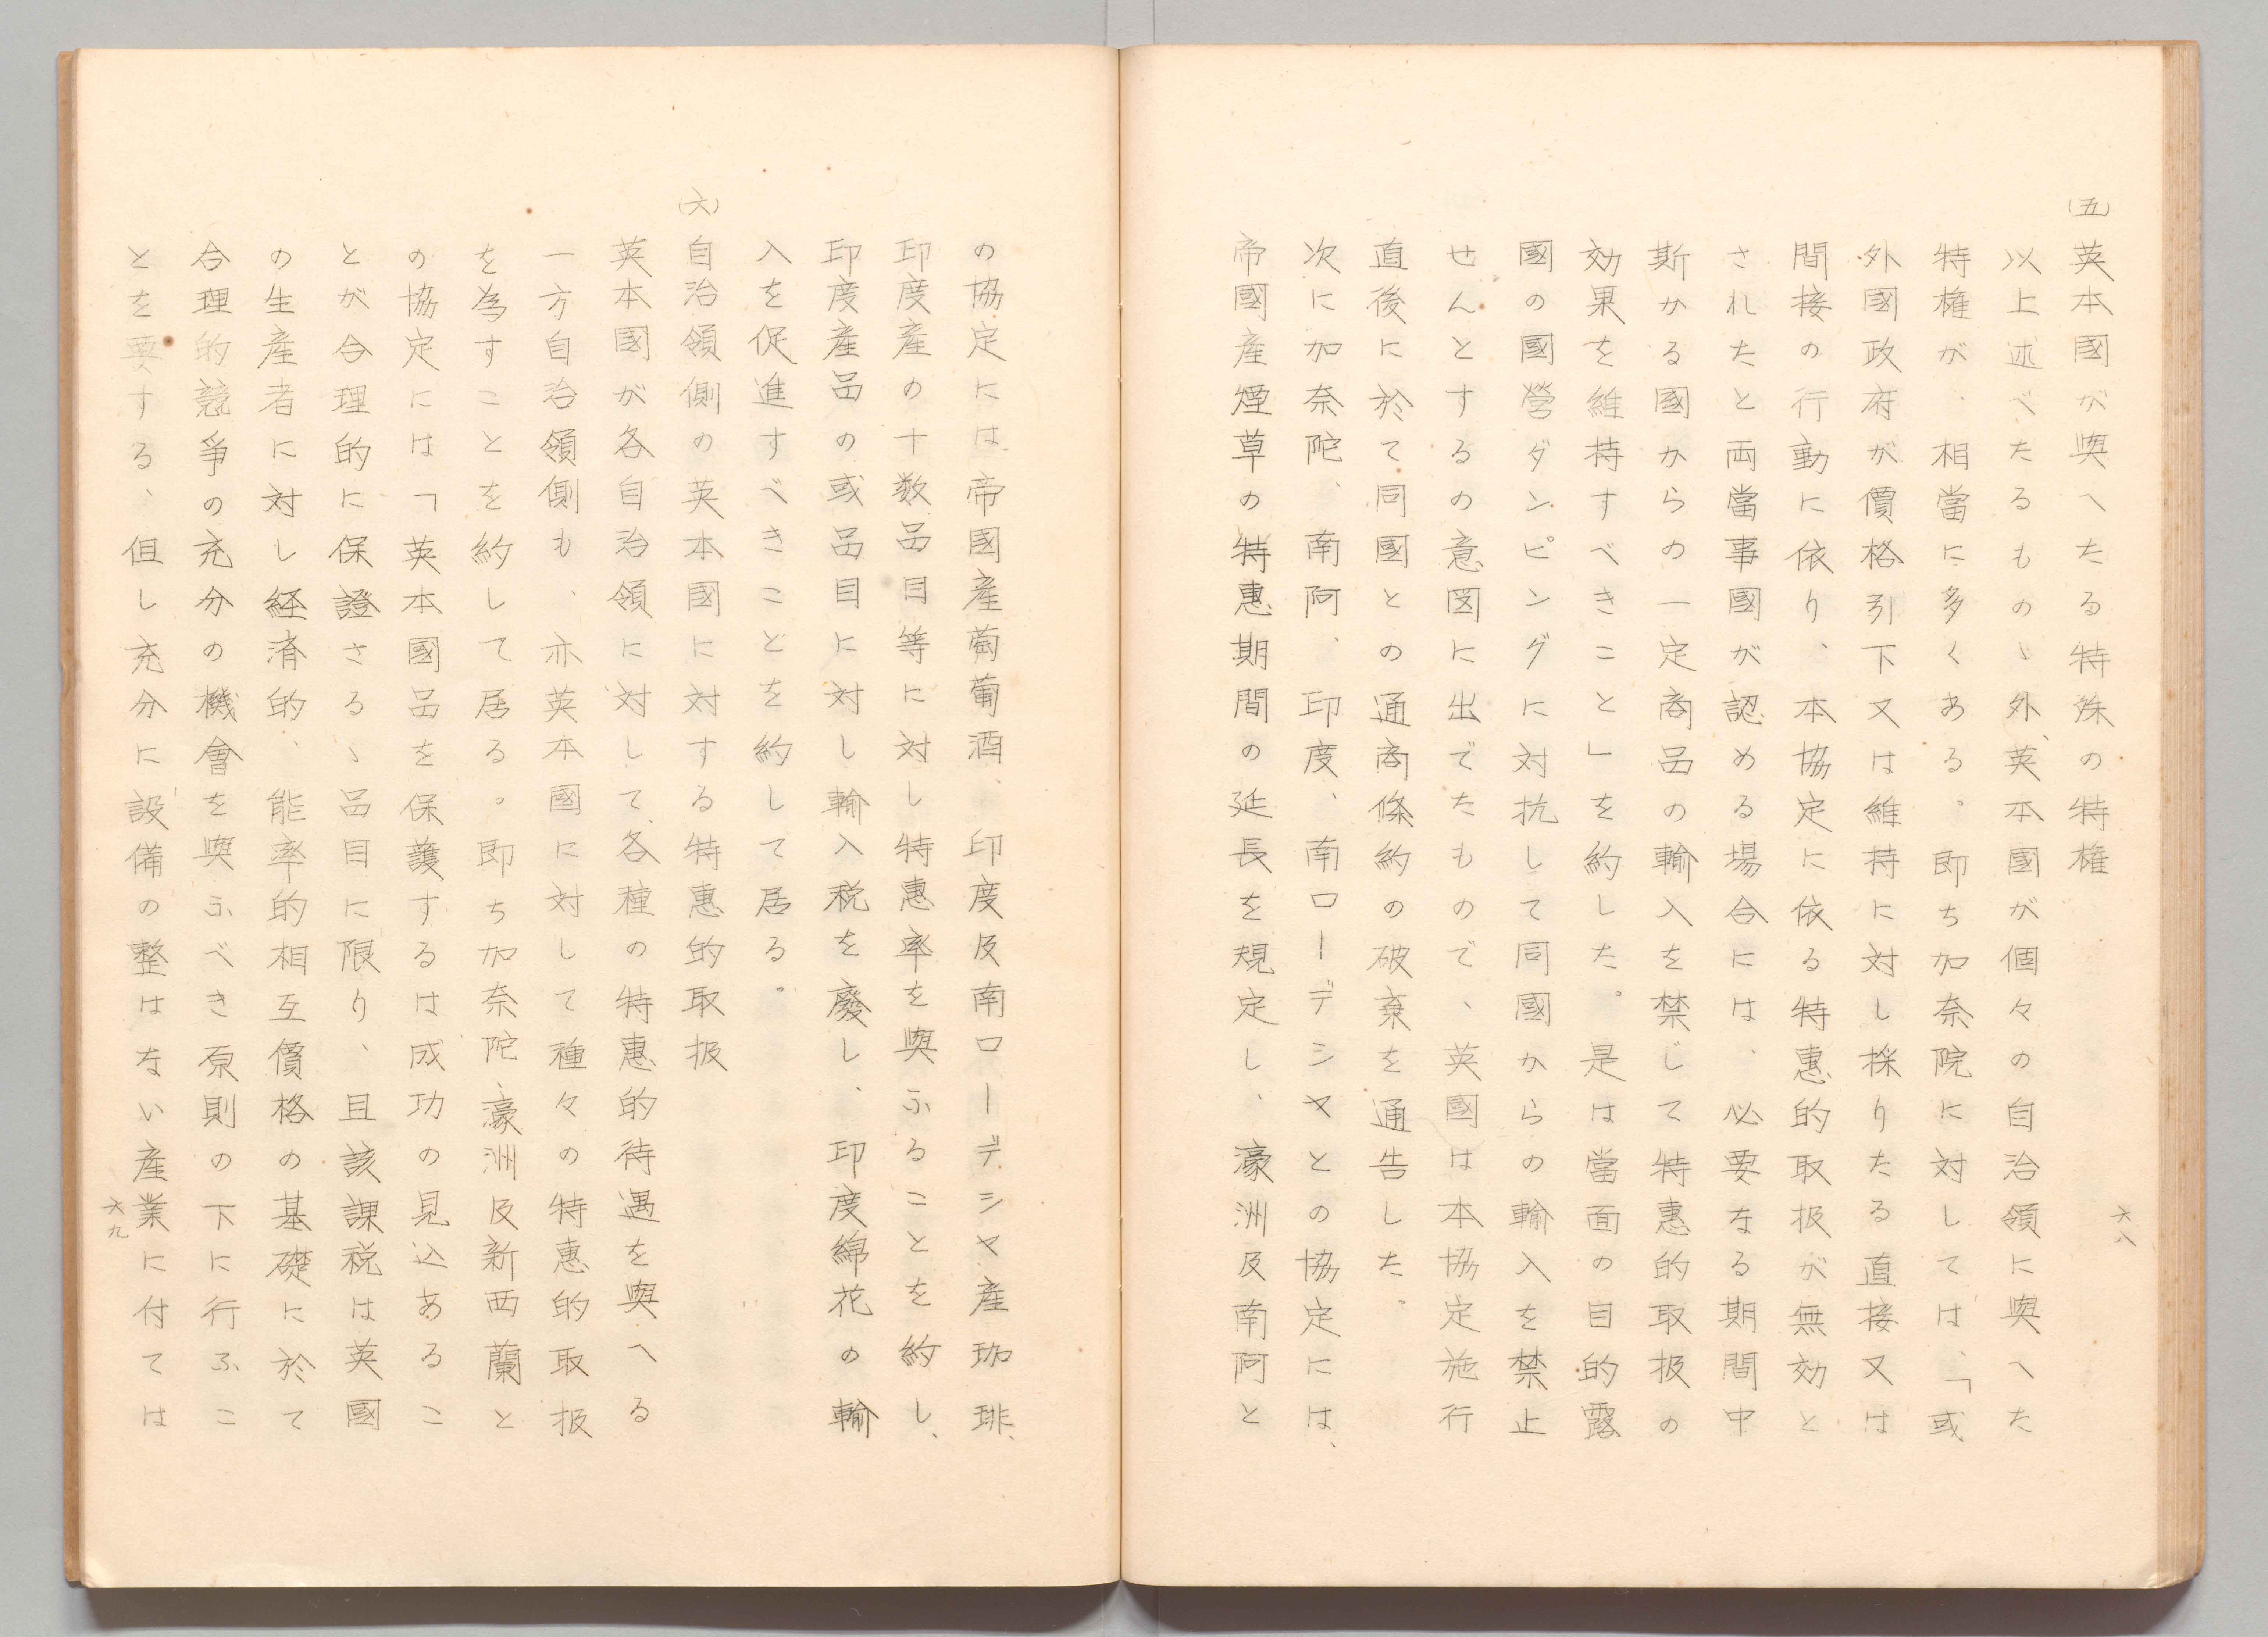 (五)英本國が與へたる特殊の特権
以上述べたるものゝ外、英本國が個々の自治領に與へた
特権が、相當に多くある。即ち加奈院に対しては、「或
外國政府が價格引下又は維持に対し採りたる直接又は
間接の行動に依り、本協定に依る特惠的取扱が無効と
されたと両當事國が認める場合には、必要なる期間中
斯かる國からの一定商品の輸入を禁じて特惠的取扱の
効果を維持すべきこと」を約した。是は當面の目的露
國の國營ダンピングに対抗して同國からの輸入を禁止
せんとするの意図に出でたもので、英國は本協定施行
直後に於て同國との通商條約の破棄を通告した。
次に加奈陀、南阿、印度、南ローデシヤとの協定には、
帝國産煙草の特惠期間の延長を規定し、濠洲及南阿と
六八
の協定には帝國産萄葡酒、印度及南ローデシヤ産珈琲、
印度産の十数品目等に対し特惠率を與ふることを約し、
印度産品の或品目に対し輸入税を廢し、印度綿花の輸
入を促進すべきことを約して居る。
(六)自治領側の英本國に対する特惠的取扱
英本國が各自治領に対して、各種の特惠的待遇を與へる
一方自治領側も、亦英本國に対して種々の特惠的取扱
を為すことを約して居る。即ち加奈陀濠洲及新西蘭と
の協定には「英本國品を保護するは成功の見込あるこ
とが合理的に保證さるゝ品目に限り、且該課税は英國
の生産者に対し経済的、能率的相互價格の基礎に於て
合理的競爭の充分の機會を與ふべき原則の下に行ふこ
とを要する、但し充分に設備の整はない産業に付ては
六九